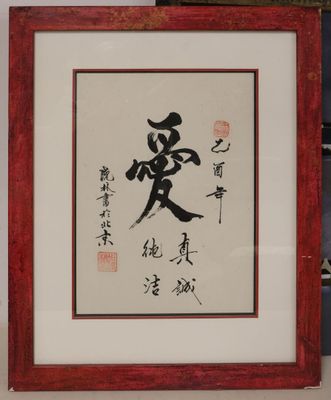 乙酉年
愛
真誠
純洁
晓林書於北京